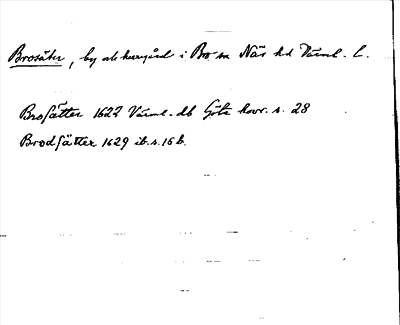 Brosäter, by och herrgård i Bro sn Näs hd Värml. l.
Brosätter 1622 Värml. db Göta hovr. s. 28
Brodsätter 1629 ib. s. 16 b.